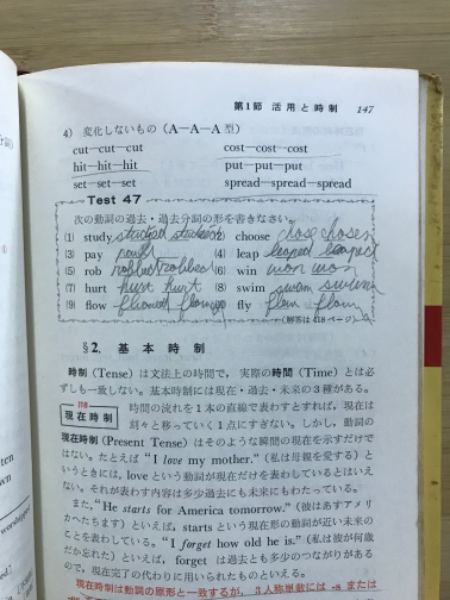 第1節 活用と時制 147
4) 変化しないもの (A—A—A 型)
cut—cut—cut cost—cost—cost
hit—hit—hit put—put—put
set—set—set spread—spread—spread
Test 47
次の動詞の過去・過去分詞の形を書きなさい。
(1) study studied studied (2) choose chose chosen
(3) pay (4) leap leaped leaped
(5) rob robbed robbed (6) win won won
(7) hurt hurt hurt (8) swim swam swum
(9) flow flowed fly
(解答は 418 ページ)
§2. 基本時制
時制 (Tense) は文法上の時間で, 実際の時間 (Time) とは必
ずしも一致しない。基本時制には現在・過去・未来の3種がある。
現在時制 時間の流れを1本の直線で表わすとすれば, 現在は
刻々と移っていく1点にすぎない。しかし, 動詞の
現在時制 (Present Tense) はそのような瞬間の現在を示すだけで
はない。たとえば “I love my mother.” (私は母親を愛する) と
いうときには, love という動詞が現在だけを表わしているとはいえ
ない。それが表わす内容は多少過去にも未来にもわたっている。
また, “He starts for America tomorrow.” (彼はあすアメリ
カへたちます) といえば, starts という現在形の動詞が近い未来の
ことを表わしている。“I forget how old he is.” (私は彼が何歳
だか忘れた) といえば, forget は過去とも多少のつながりがある
ので, 現在完了の代わりに用いられたものといえる。
現在時制は動詞の原形と一致するが, 3人称単数には -s または